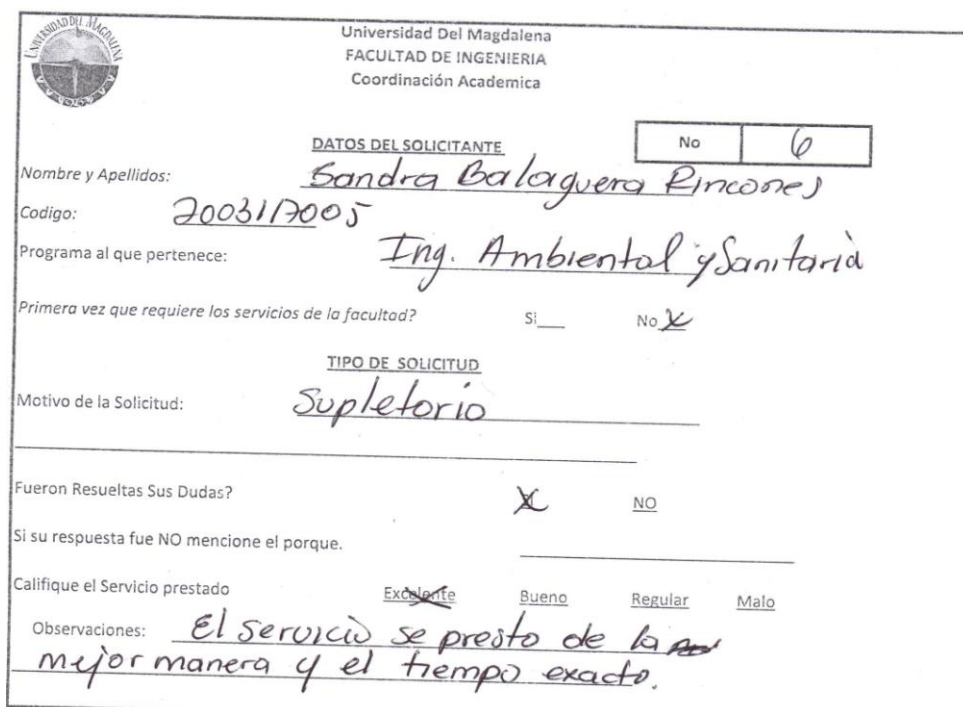 UNIVERSIDAD DEL MAGDALENA
Universidad Del Magdalena
FACULTAD DE INGENIERIA
Coordinación Academica
DATOS DEL SOLICITANTE No 6
Nombre y Apellidos: Sandra Balaguera Rincones
Codigo: 2003117005
Programa al que pertenece: Ing. Ambiental y Sanitaria
Primera vez que requiere los servicios de la facultad? Si___ No X
TIPO DE SOLICITUD
Motivo de la Solicitud: Supletorio
Fueron Resueltas Sus Dudas? X NO
Si su respuesta fue NO mencione el porque.
Califique el Servicio prestado Excelente Bueno Regular Malo
Observaciones: El servicio se presto de la
mejor manera y el tiempo exacto.